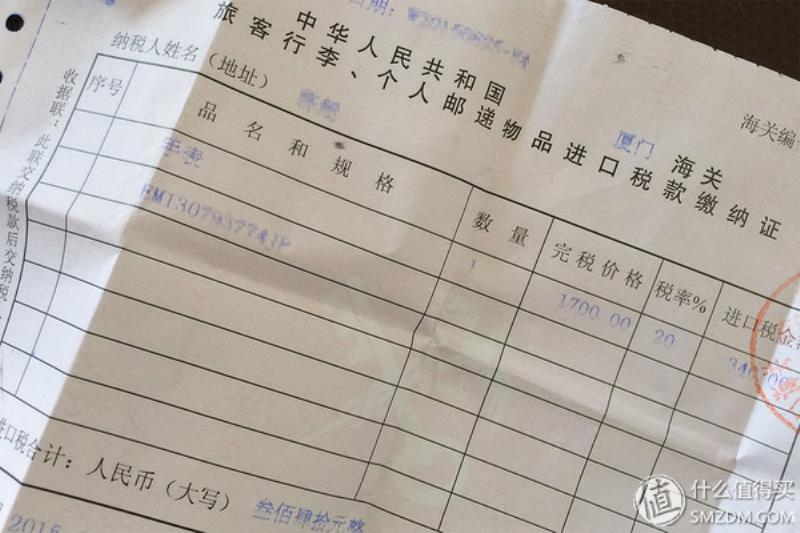 中华人民共和国
厦门 海关
海关编
旅客行李、个人邮递物品进口税款缴纳证
纳税人姓名
(地址)
序号 品名和规格 数量 完税价格 税率% 进口税金
手表 1 1700.00 20 340.00
收据联:此联交纳税款后交纳税
进口税合计:人民币(大写) 叁佰肆拾元整
2015
值 什么值得买
SMZDM.COM